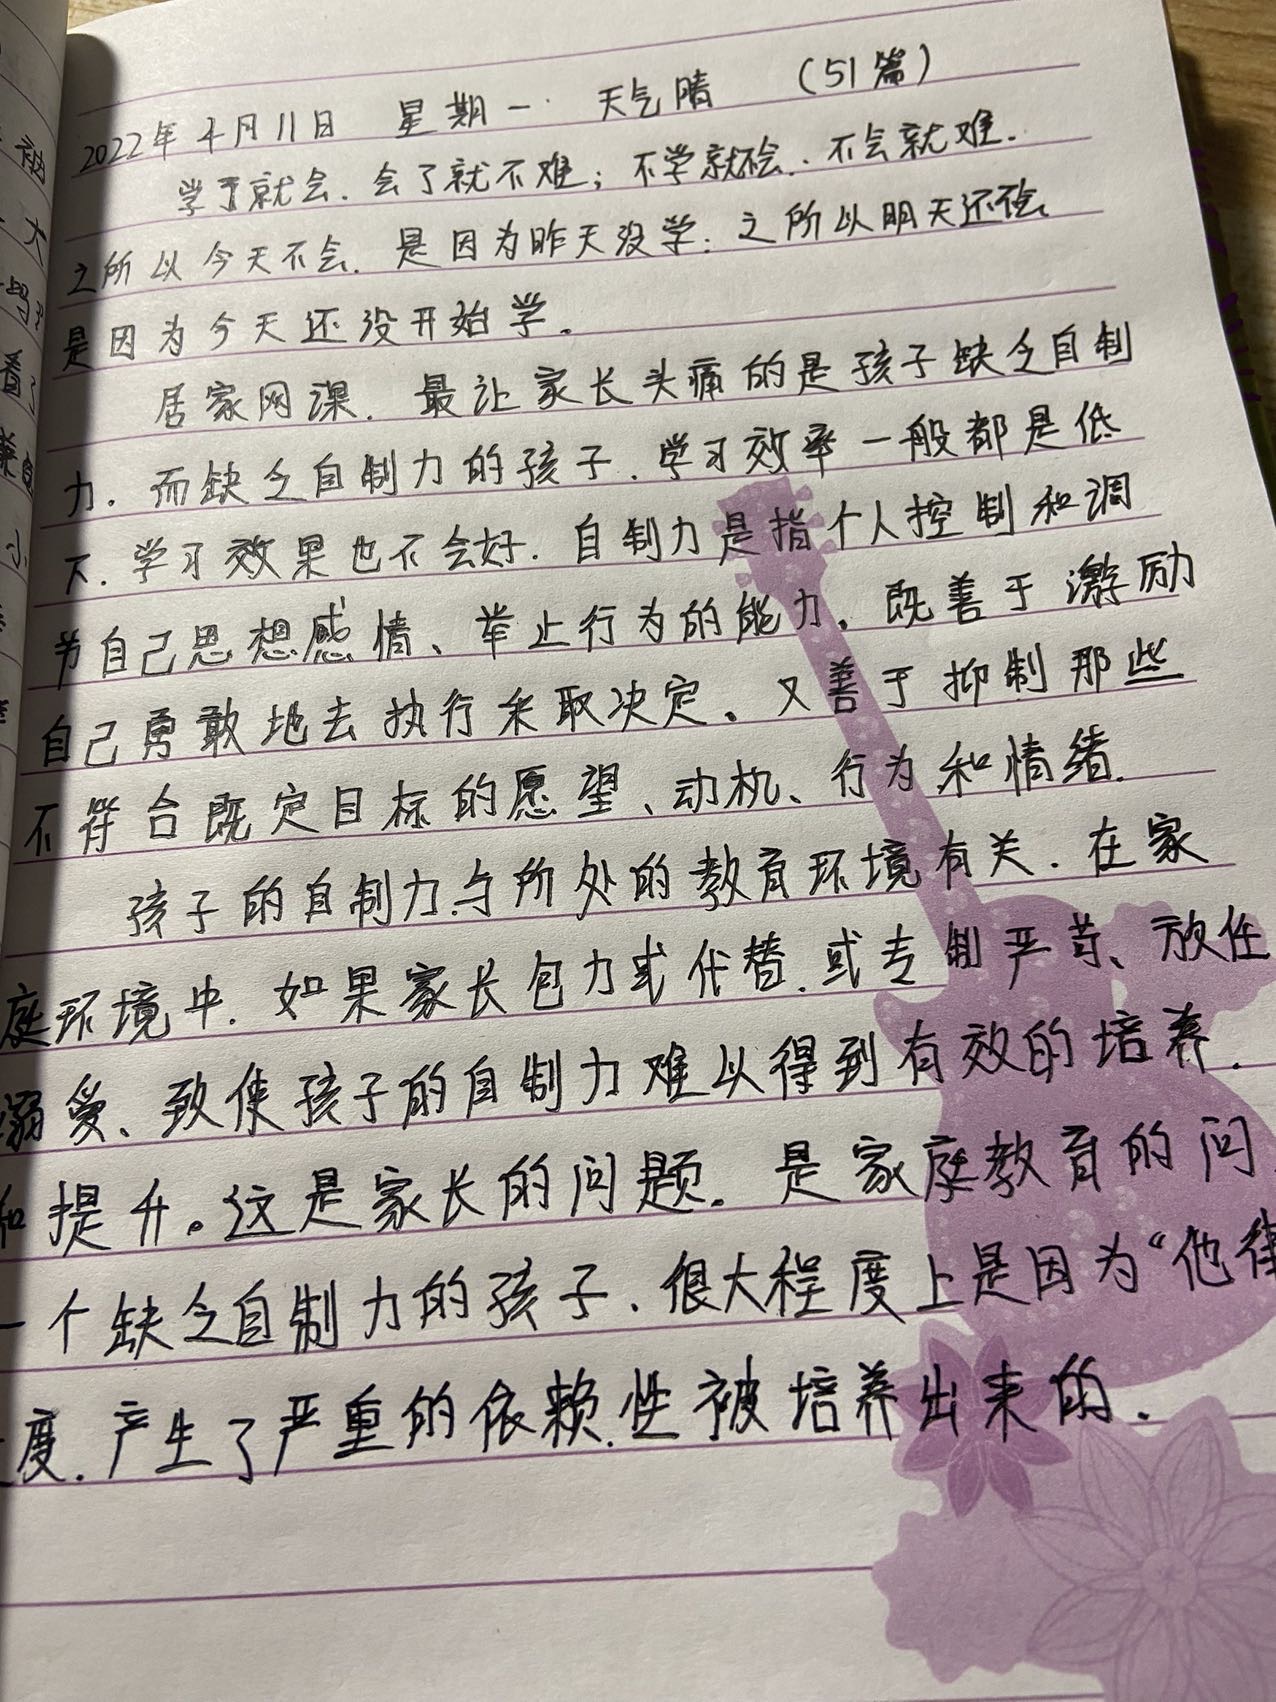 2022年4月11日 星期一. 天气晴 (51篇)
学了就会.会了就不难;不学就不会.不会就难.
之所以今天不会.是因为昨天没学:之所以明天还不会、
是因为今天还没开始学。
居家网课.最让家长头痛的是孩子缺乏自制
力.而缺乏自制力的孩子.学习效率一般都是低
下.学习效果也不会好.自制力是指个人控制和调
节自己思想感情、举止行为的能力。既善于激励
自己勇敢地去执行采取决定。又善于抑制那些
不符合既定目标的愿望、动机、行为和情绪.
孩子的自制力与所处的教育环境有关.在家
庭环境中.如果家长包办或代替.或专制严苛、放任
溺爱、致使孩子的自制力难以得到有效的培养.
和提升。这是家长的问题.是家庭教育的问
一个缺乏自制力的孩子.很大程度上是因为“他律
度.产生了严重的依赖性被培养出来的.
被
大
妈
看了
小